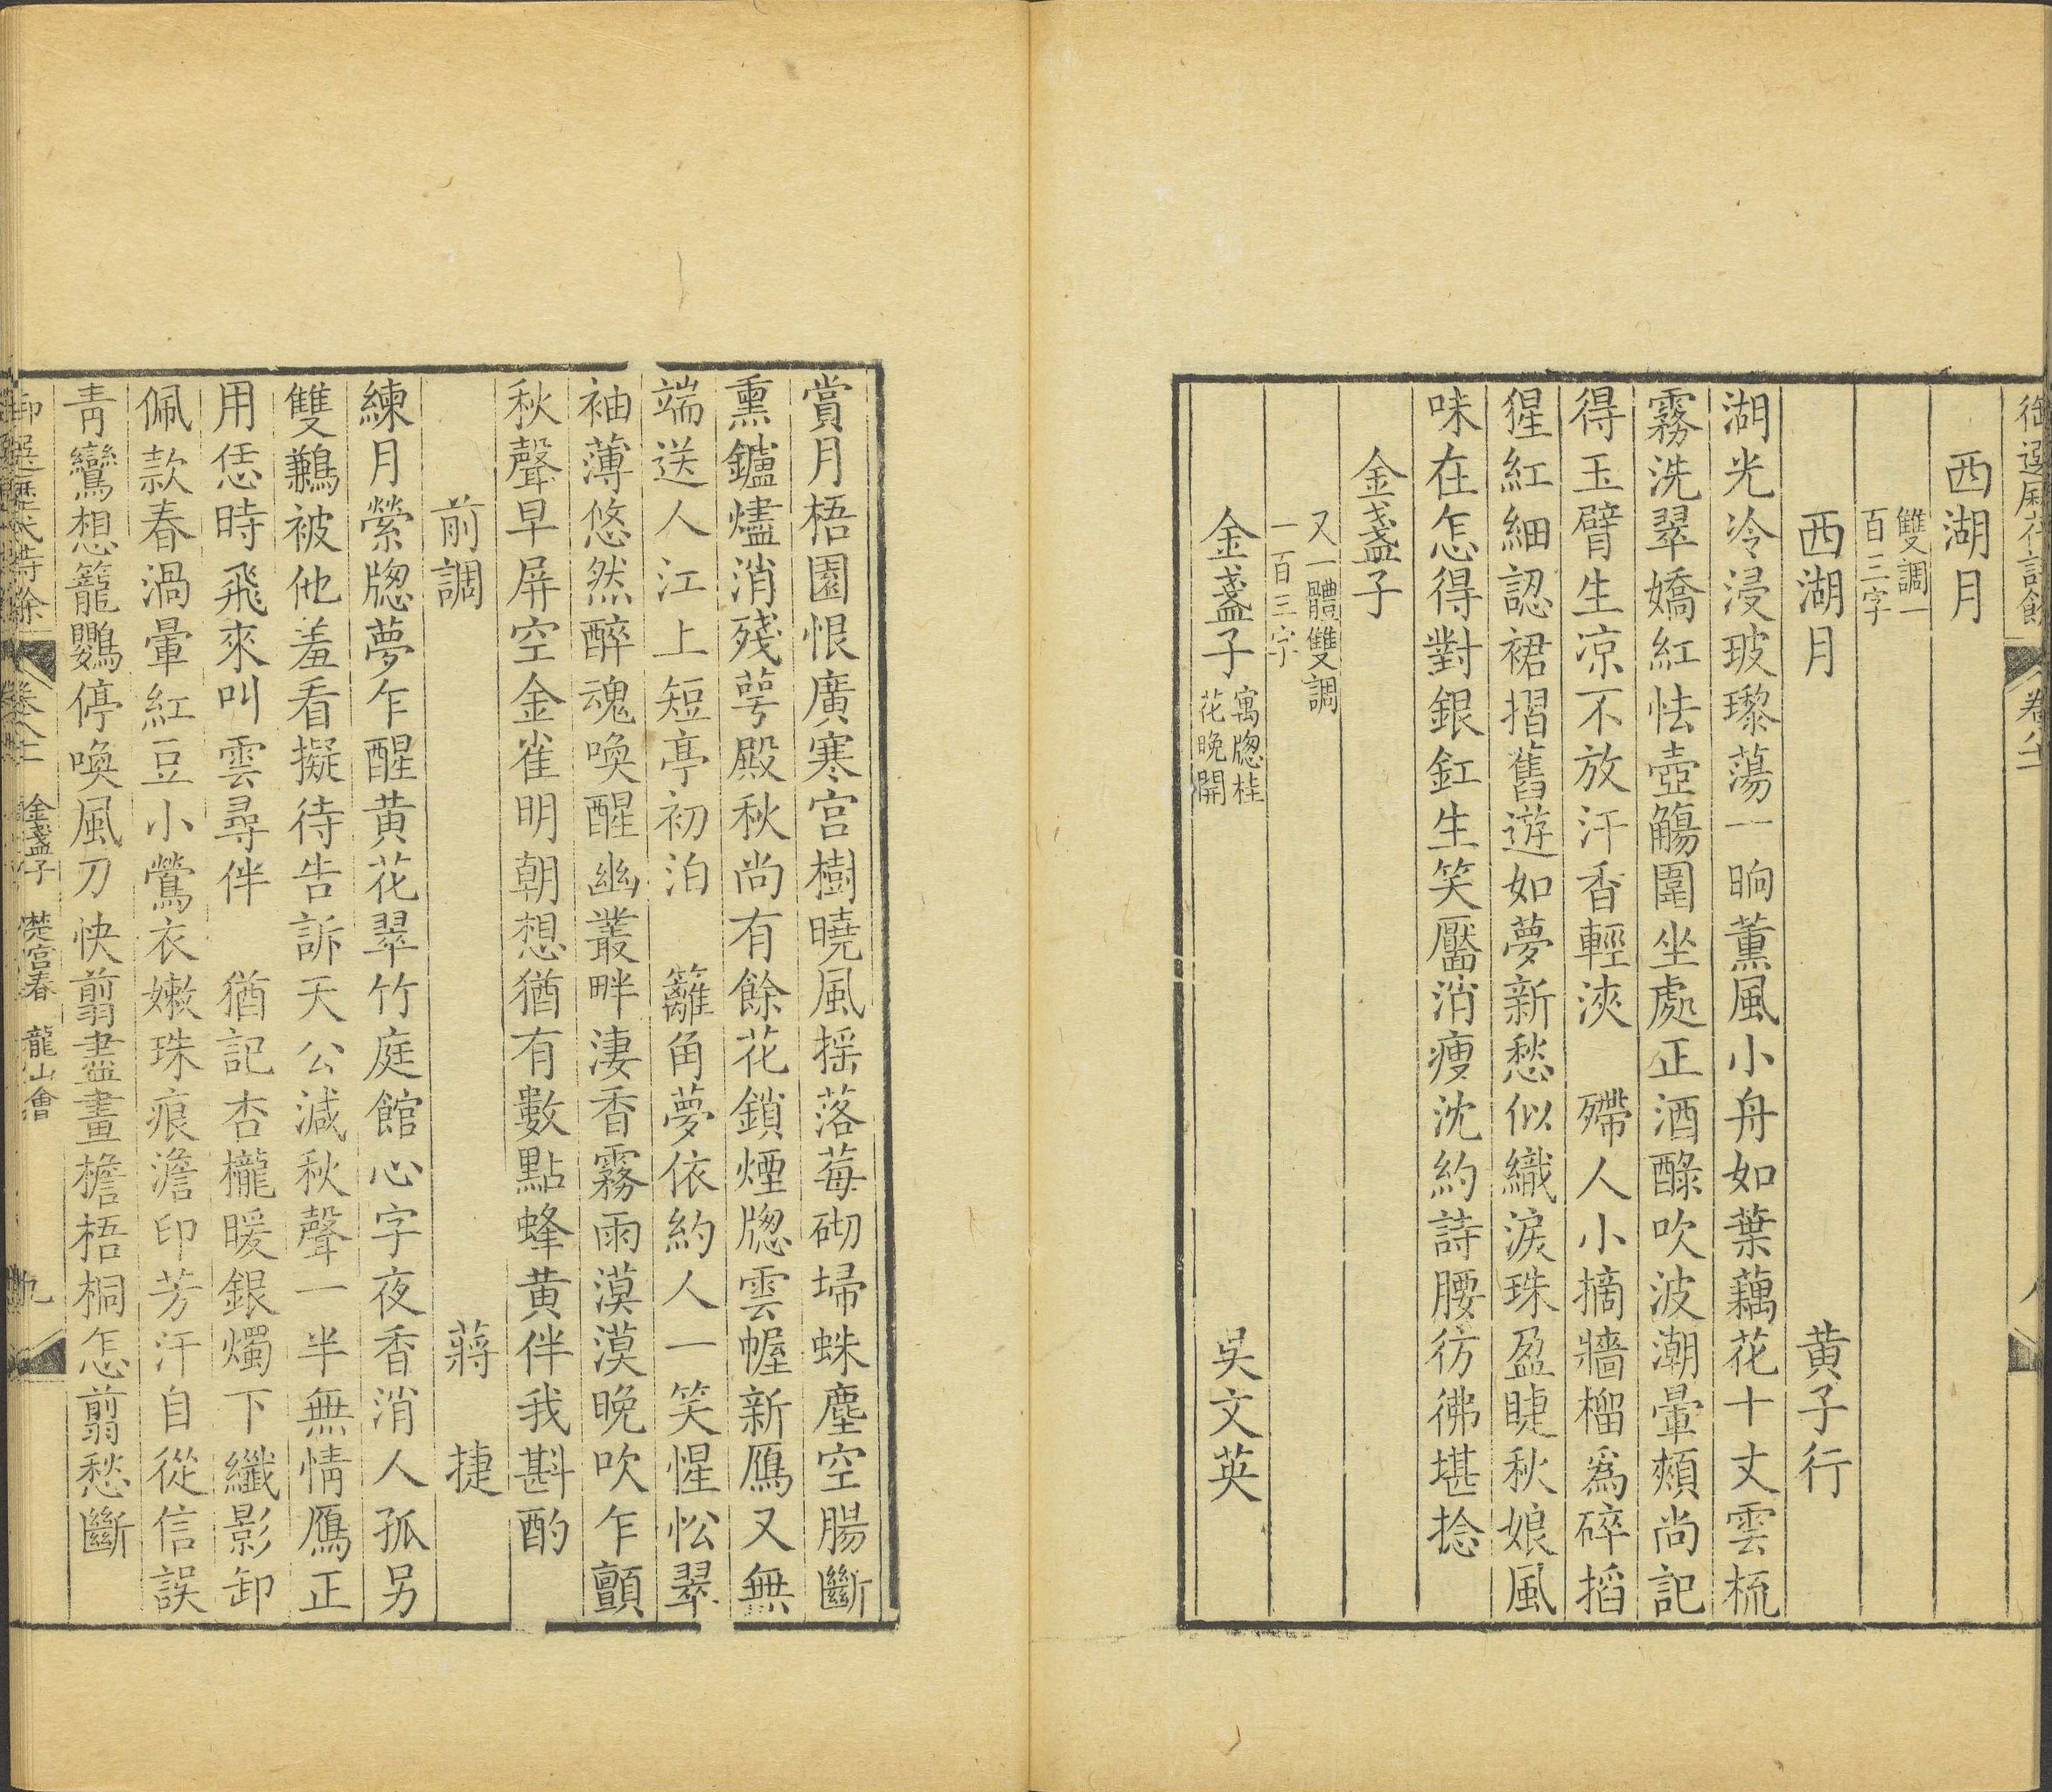 御選歷代詩餘
卷八十二
八
西湖月
雙調一
百三字
西湖月
黄子行
湖光冷浸玻瓈蕩一晌薫風小舟如葉藕花十丈雲梳
霧洗翠嬌紅怯壺觴圍坐處正酒醁吹波潮暈頰尚記
得玉臂生凉不放汗香輕浹　殢人小摘牆榴爲碎搯
猩紅細認裙摺舊遊如夢新愁似織淚珠盈睫秋娘風
味在怎得對銀釭生笑靨消瘦沈約詩腰彷彿堪捻
金盞子
又一體雙調
一百三字
金盞子
寓牎桂
花晚開
吳文英
賞月梧園恨廣寒宮樹曉風摇落莓砌埽蛛塵空腸斷
熏鑪燼消殘萼殿秋尚有餘花鎖煙牎雲幄新鴈又無
端送人江上短亭初泊　籬角夢依約人一笑惺忪翠
袖薄悠然醉魂喚醒幽叢畔淒香霧雨漠漠晚吹乍顫
秋聲早屏空金雀明朝想猶有數點蜂黄伴我斟酌
前調
蔣　捷
練月縈牎夢乍醒黄花翠竹庭館心字夜香消人孤另
雙鶼被他羞看擬待告訴天公減秋聲一半無情鴈正
用恁時飛來叫雲尋伴　猶記杏櫳暖銀燭下纖影卸
佩款春渦暈紅豆小鶯衣嫩珠痕澹印芳汗自從信誤
青鸞想籠鸚停喚風刀快翦盡畫檐梧桐怎翦愁斷
御選歷代詩餘
卷八十二
金盞子　楚宮春　龍山會
九